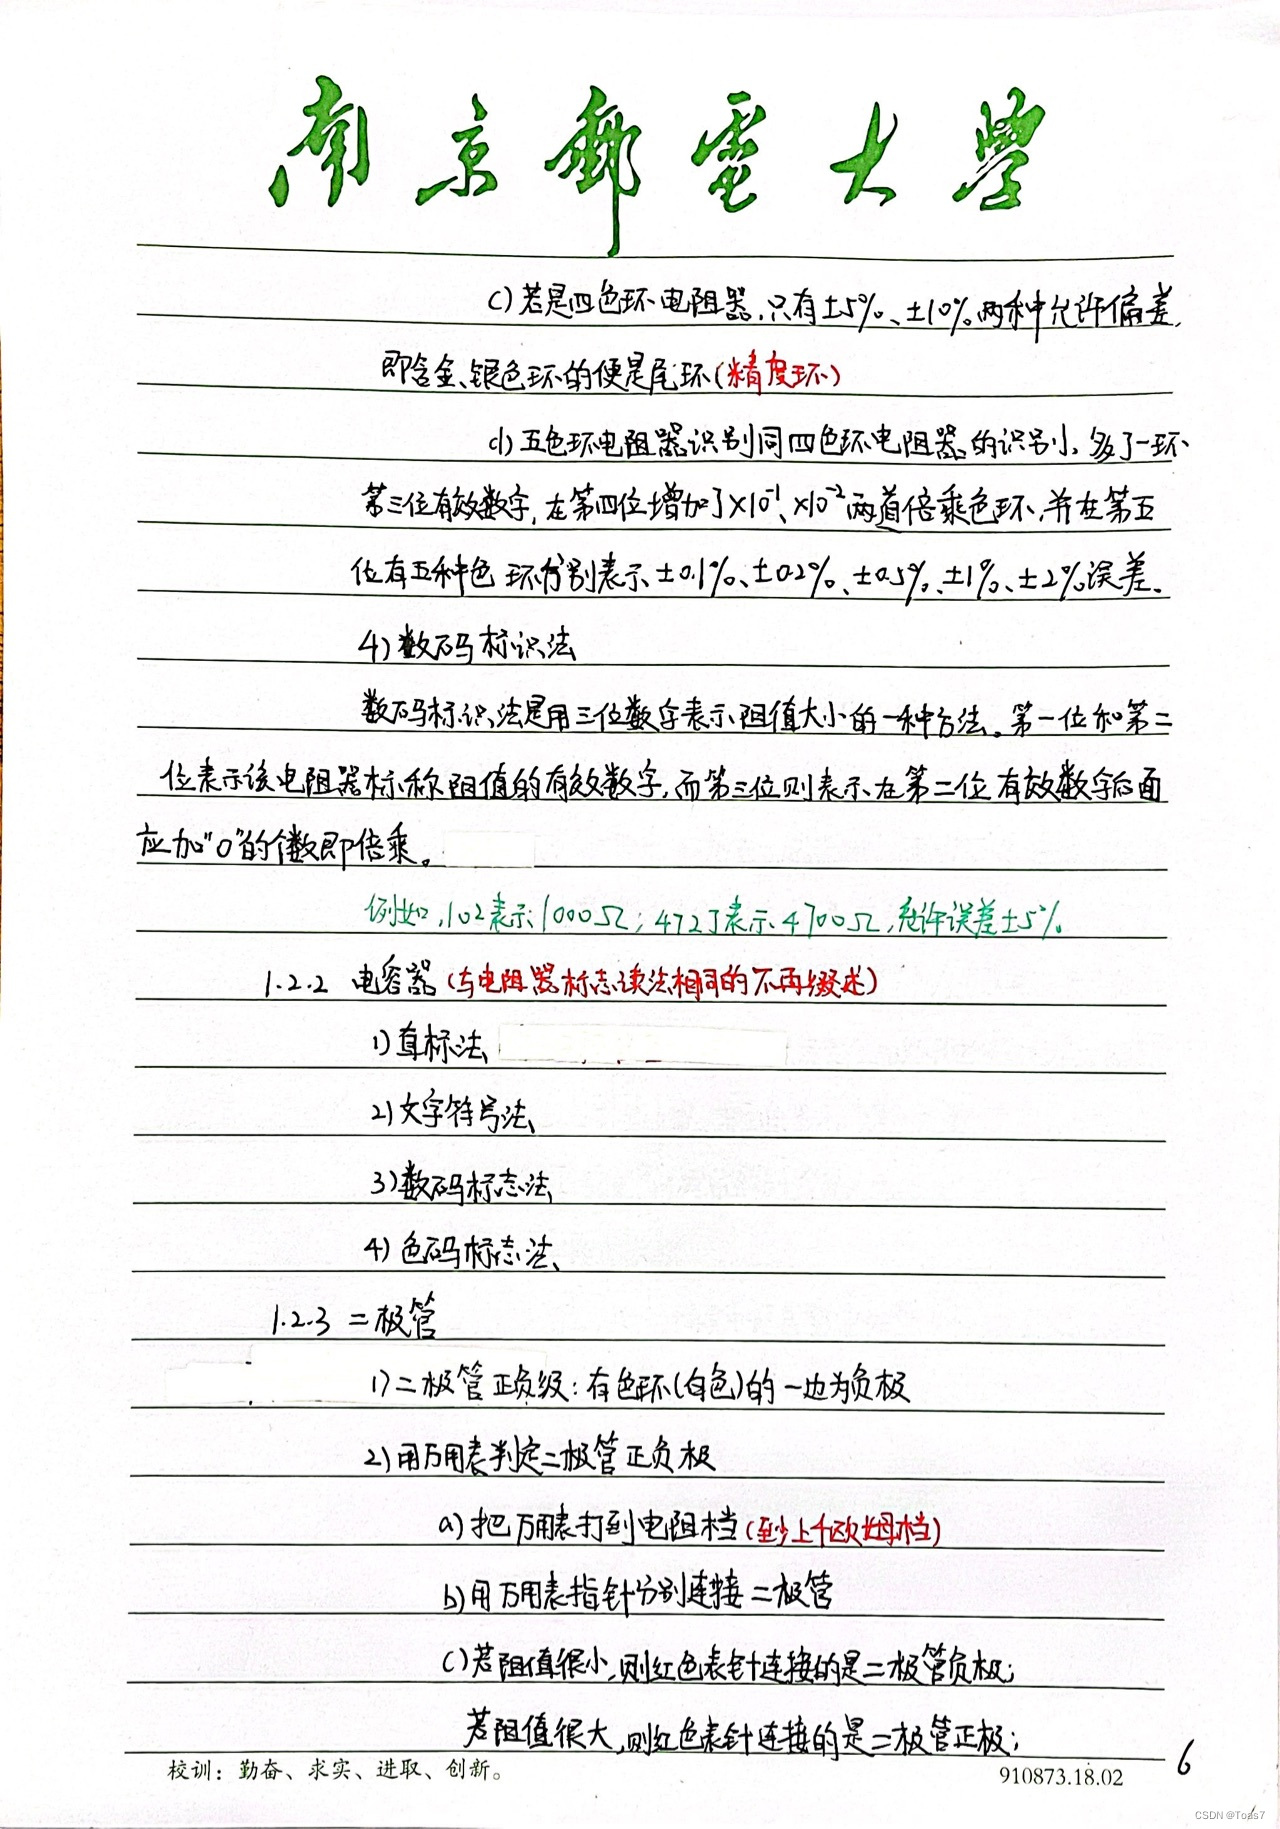 南京郵電大學
c)若是四色环电阻器,只有±5%、±10%两种允许偏差,
即含金、银色环的便是尾环(精度环)
d)五色环电阻器识别同四色环电阻器的识别小,多了一环
第三位有效数字,在第四位增加了×10⁻¹、×10⁻²两道倍乘色环,并在第五
位有五种色环分别表示±0.1%、±0.2%、±0.5%、±1%、±2%误差。
4)数码标识法
数码标识法是用三位数字表示阻值大小的一种方法。第一位和第二
位表示该电阻器标称阻值的有效数字,而第三位则表示在第二位有效数字后面
应加"0"的个数即倍乘。
例如,102表示1000Ω;472J表示4700Ω,允许误差±5%
1.2.2 电容器(与电阻器标志读法相同的不再缀述)
1)直标法
2)文字符号法
3)数码标志法
4)色码标志法
1.2.3 二极管
1)二极管正负级:有色环(白色)的一边为负极
2)用万用表判定二极管正负极
a)把万用表打到电阻档(至少上千欧姆档)
b)用万用表指针分别连接二极管
c)若阻值很小,则红色表针连接的是二极管负极;
若阻值很大,则红色表针连接的是二极管正极;
校训:勤奋、求实、进取、创新。
910873.18.02
6
CSDN @Toas7